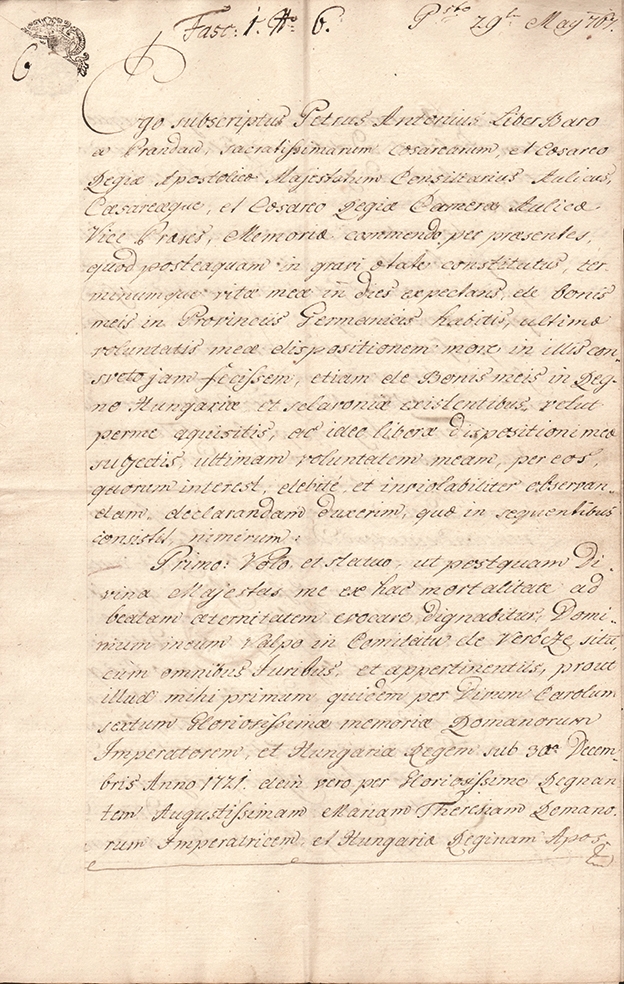 Fasc: 1. No 6. Psto 29a May 767.
6
Ego subscriptus Petrus Antonius Liber Baro
a Prandau, sacratissimarum Cæsarearum, et Cæsareo
Regiæ Apostolicæ Majestatum Consiliarius Aulicus,
Cæsareæque, et Cæsareo Regiæ Cameræ Aulicæ
Vice Præses, Memoriæ commendo per præsentes,
quod posteaquam in gravi ætate constitutus, ter
minumque vitæ meæ in dies expectans, de bonis
meis in Provinciis Germanicis habitis, ultimæ
voluntatis meæ dispositionem more in illis con
sveto jam fecissem, etiam de Bonis meis in Reg-
no Hungariæ et Sclavoniæ existentibus, velut
per me aquisitis, ac ideo liberæ dispositioni meæ
subjectis, ultimam voluntatem meam, per eos,
quorum interest, debitè et inviolabiliter observan-
dam, declarandam duxerim, quæ in sequentibus
consistit nimirum:
Primo: Volo et statuo, ut postquam Di
vina Majestas me ex hac mortalitate ad
beatam æternitatem evocare dignabitur, Domi
nium meum Valpo in Comitatu de Verõcze situ,
cum omnibus Juribus, et appertinentiis, prout
illud mihi primum quidem per Divum Carolum
sextum Gloriosissimæ memoriæ Romanorum
Imperatorem, et Hungariæ Regem sub 30a Decem
bris Anno 1721. dein vero per Gloriosissime Regnan
tem Augustissimam Mariam Theresiam Romano-
rum Imperatricem et Hungariæ Reginam Apos